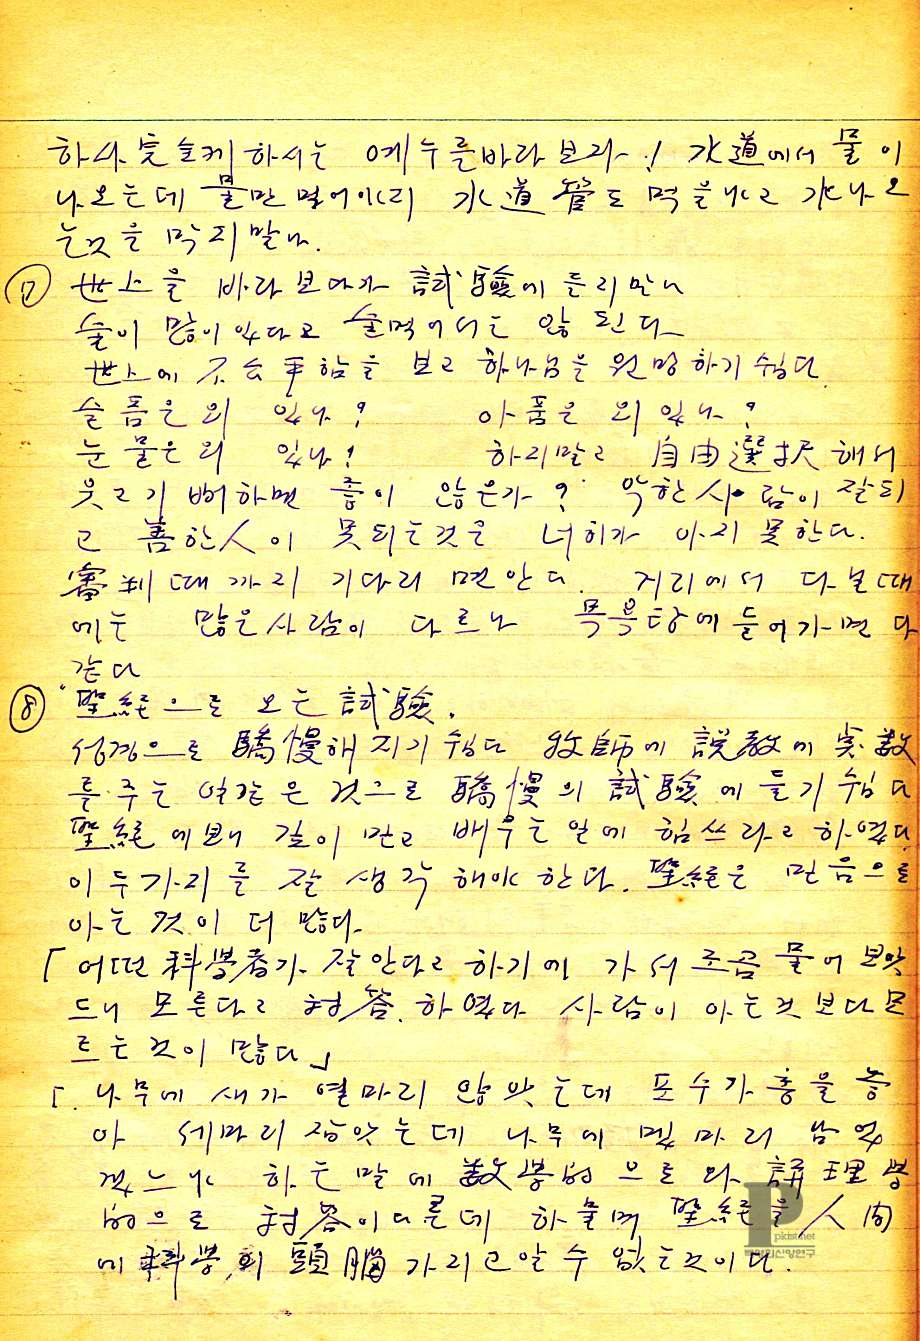 하사 完全케 하시는 예수를 바라보라! 水道에서 물이
나오는데 물만 먹어야지 水道管도 먹을냐고 水나오
는것을 막지말나.
⑦ 世上을 바라보다가 試驗에 들리만나
술이 많이 있다고 술먹어서는 않 된다
世上에 不公平함을 보고 하나님을 원망하기 쉽다.
슬품은 외 있나? 아품은 외 있나?
눈물은 외 있나! 하지말고 自由選択해서
웃고기뻐하면 좋이 않은가? 악한사람이 잘되
고 善한人이 못되는것을 너히가 아지 못한다.
審判때까지 기다리면 안다. 거리에서 다닐때
에는 많은사람이 다르나 목욕탕에 들어가면 다
같다
⑧ 聖經으로 오는 試驗.
성경으로 驕慢해지기 쉽다 牧師에 説教에 実数
를 주는 것으로 驕慢의 試驗에 들기 쉽다
聖經에 보니 깊이 믿고 배우는 일에 힘쓰라고 하였다
이 두가지를 잘 생각 해야 한다. 聖經은 믿음으로
아는 것이 더 많다.
「어떤 科學者가 잘안다고 하기에 가서 조곰 물어 보앗
드니 모른다고 対答.하였다 사람이 아는것보다 모
르는것이 많다」
「.나무에 새가 열마리 앉앗는데 포수가 총을 놓
아 세마리 잡앗는데 나무에 몟마리 남엇
겠느냐 하는 말에 数學的으로 와 講理學
的으로 対答이 다른데 하물며 聖經을 人間
에 科學.의 頭腦 가지고 알 수 없는것이다.
P
pkist.net
박헌의신앙연구